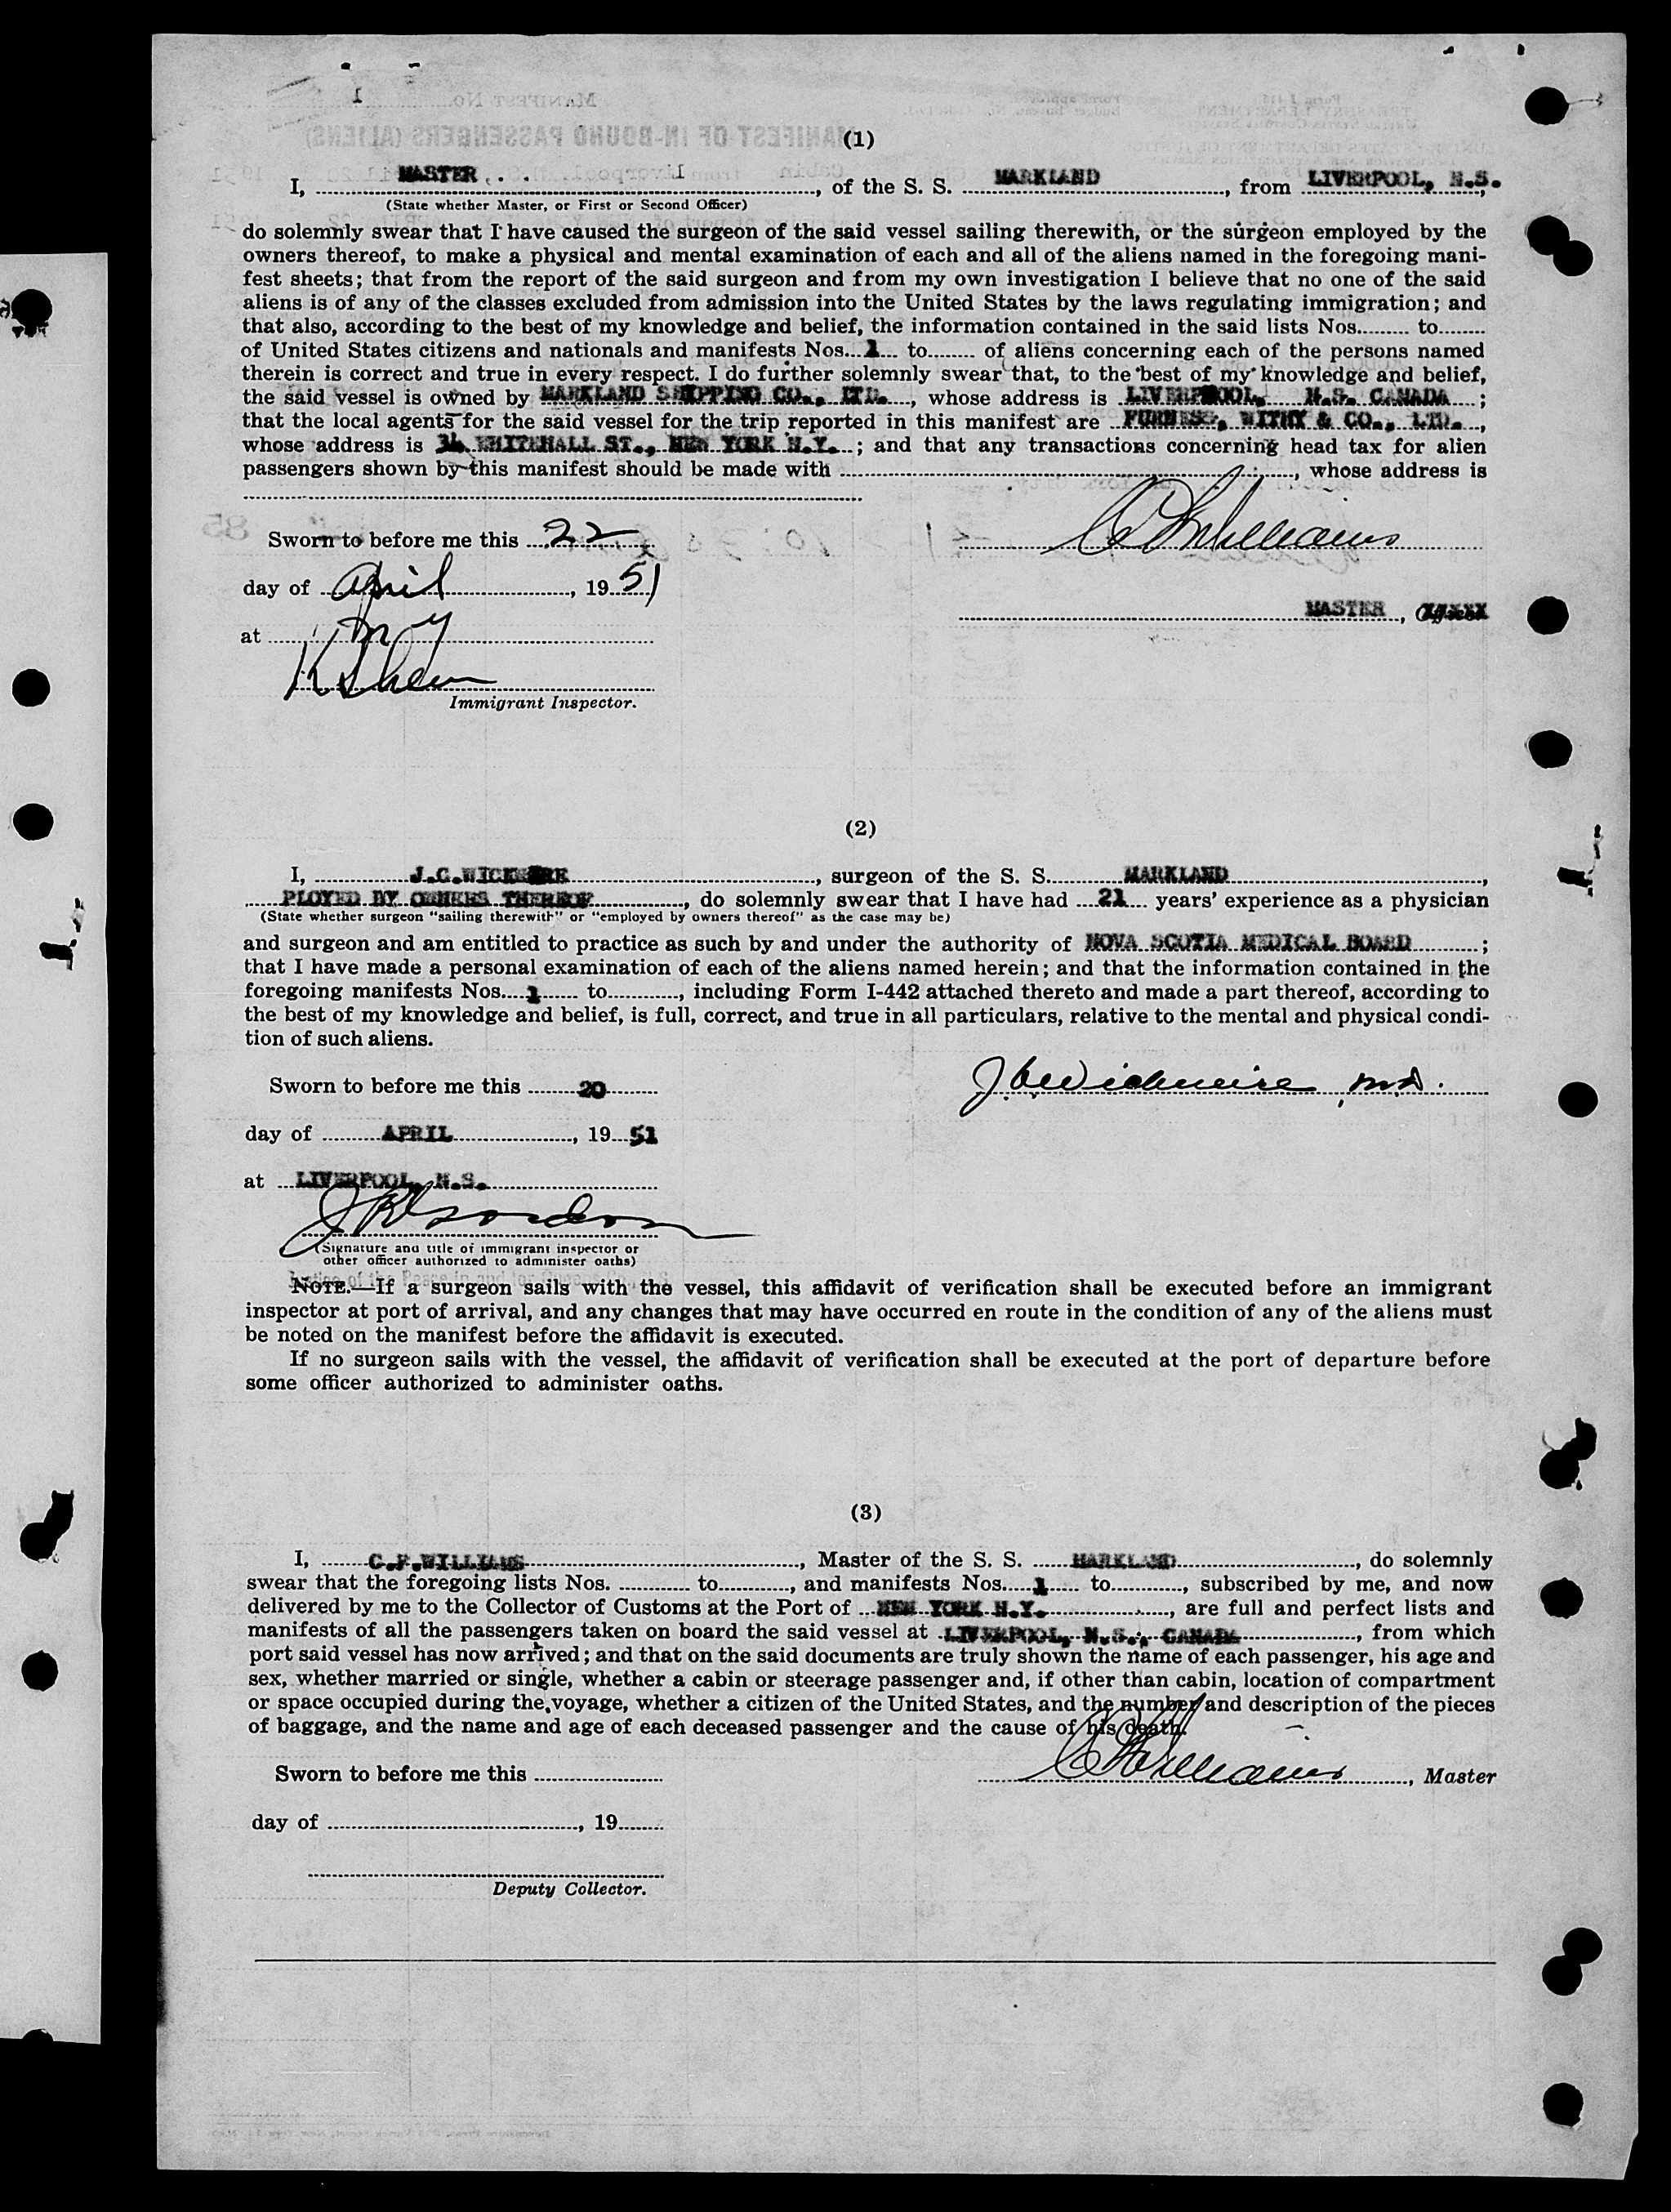 (1)
I, MASTER, of the S. S. MARKLAND, from LIVERPOOL, N.S.
(State whether Master, or First or Second Officer)
do solemnly swear that I have caused the surgeon of the said vessel sailing therewith, or the surgeon employed by the
owners thereof, to make a physical and mental examination of each and all of the aliens named in the foregoing mani-
fest sheets; that from the report of the said surgeon and from my own investigation I believe that no one of the said
aliens is of any of the classes excluded from admission into the United States by the laws regulating immigration; and
that also, according to the best of my knowledge and belief, the information contained in the said lists Nos. to
of United States citizens and nationals and manifests Nos. 1 to of aliens concerning each of the persons named
therein is correct and true in every respect. I do further solemnly swear that, to the best of my knowledge and belief,
the said vessel is owned by MARKLAND SHIPPING CO., LTD., whose address is LIVERPOOL, N.S. CANADA ;
that the local agents for the said vessel for the trip reported in this manifest are FURNESS, WITHY & CO., LTD.,
whose address is 34 WHITEHALL ST., NEW YORK N.Y. ; and that any transactions concerning head tax for alien
passengers shown by this manifest should be made with , whose address is
Sworn to before me this 22
C F Williams
day of April, 19 51
MASTER, Officer
at N Y
Immigrant Inspector.
(2)
I, J.C.WICKWIRE, surgeon of the S. S. MARKLAND,
PLOYED BY OWNERS THEREOF, do solemnly swear that I have had 21 years' experience as a physician
(State whether surgeon "sailing therewith" or "employed by owners thereof" as the case may be)
and surgeon and am entitled to practice as such by and under the authority of NOVA SCOTIA MEDICAL BOARD ;
that I have made a personal examination of each of the aliens named herein; and that the information contained in the
foregoing manifests Nos. 1 to , including Form I-442 attached thereto and made a part thereof, according to
the best of my knowledge and belief, is full, correct, and true in all particulars, relative to the mental and physical condi-
tion of such aliens.
Sworn to before me this 20
J C Wickwire, M.D.
day of APRIL, 19 51
at LIVERPOOL, N.S.
(Signature and title of immigrant inspector or
other officer authorized to administer oaths)
NOTE.—If a surgeon sails with the vessel, this affidavit of verification shall be executed before an immigrant
inspector at port of arrival, and any changes that may have occurred en route in the condition of any of the aliens must
be noted on the manifest before the affidavit is executed.
If no surgeon sails with the vessel, the affidavit of verification shall be executed at the port of departure before
some officer authorized to administer oaths.
(3)
I, C.F.WILLIAMS, Master of the S. S. MARKLAND, do solemnly
swear that the foregoing lists Nos. to , and manifests Nos. 1 to , subscribed by me, and now
delivered by me to the Collector of Customs at the Port of NEW YORK N.Y., are full and perfect lists and
manifests of all the passengers taken on board the said vessel at LIVERPOOL, N.S., CANADA, from which
port said vessel has now arrived; and that on the said documents are truly shown the name of each passenger, his age and
sex, whether married or single, whether a cabin or steerage passenger and, if other than cabin, location of compartment
or space occupied during the voyage, whether a citizen of the United States, and the number and description of the pieces
of baggage, and the name and age of each deceased passenger and the cause of his death.
Sworn to before me this
C F Williams, Master
day of , 19
Deputy Collector.